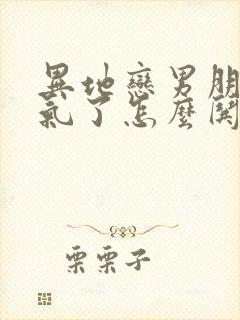 異地戀男朋
氣了怎麼鬨
栗栗子